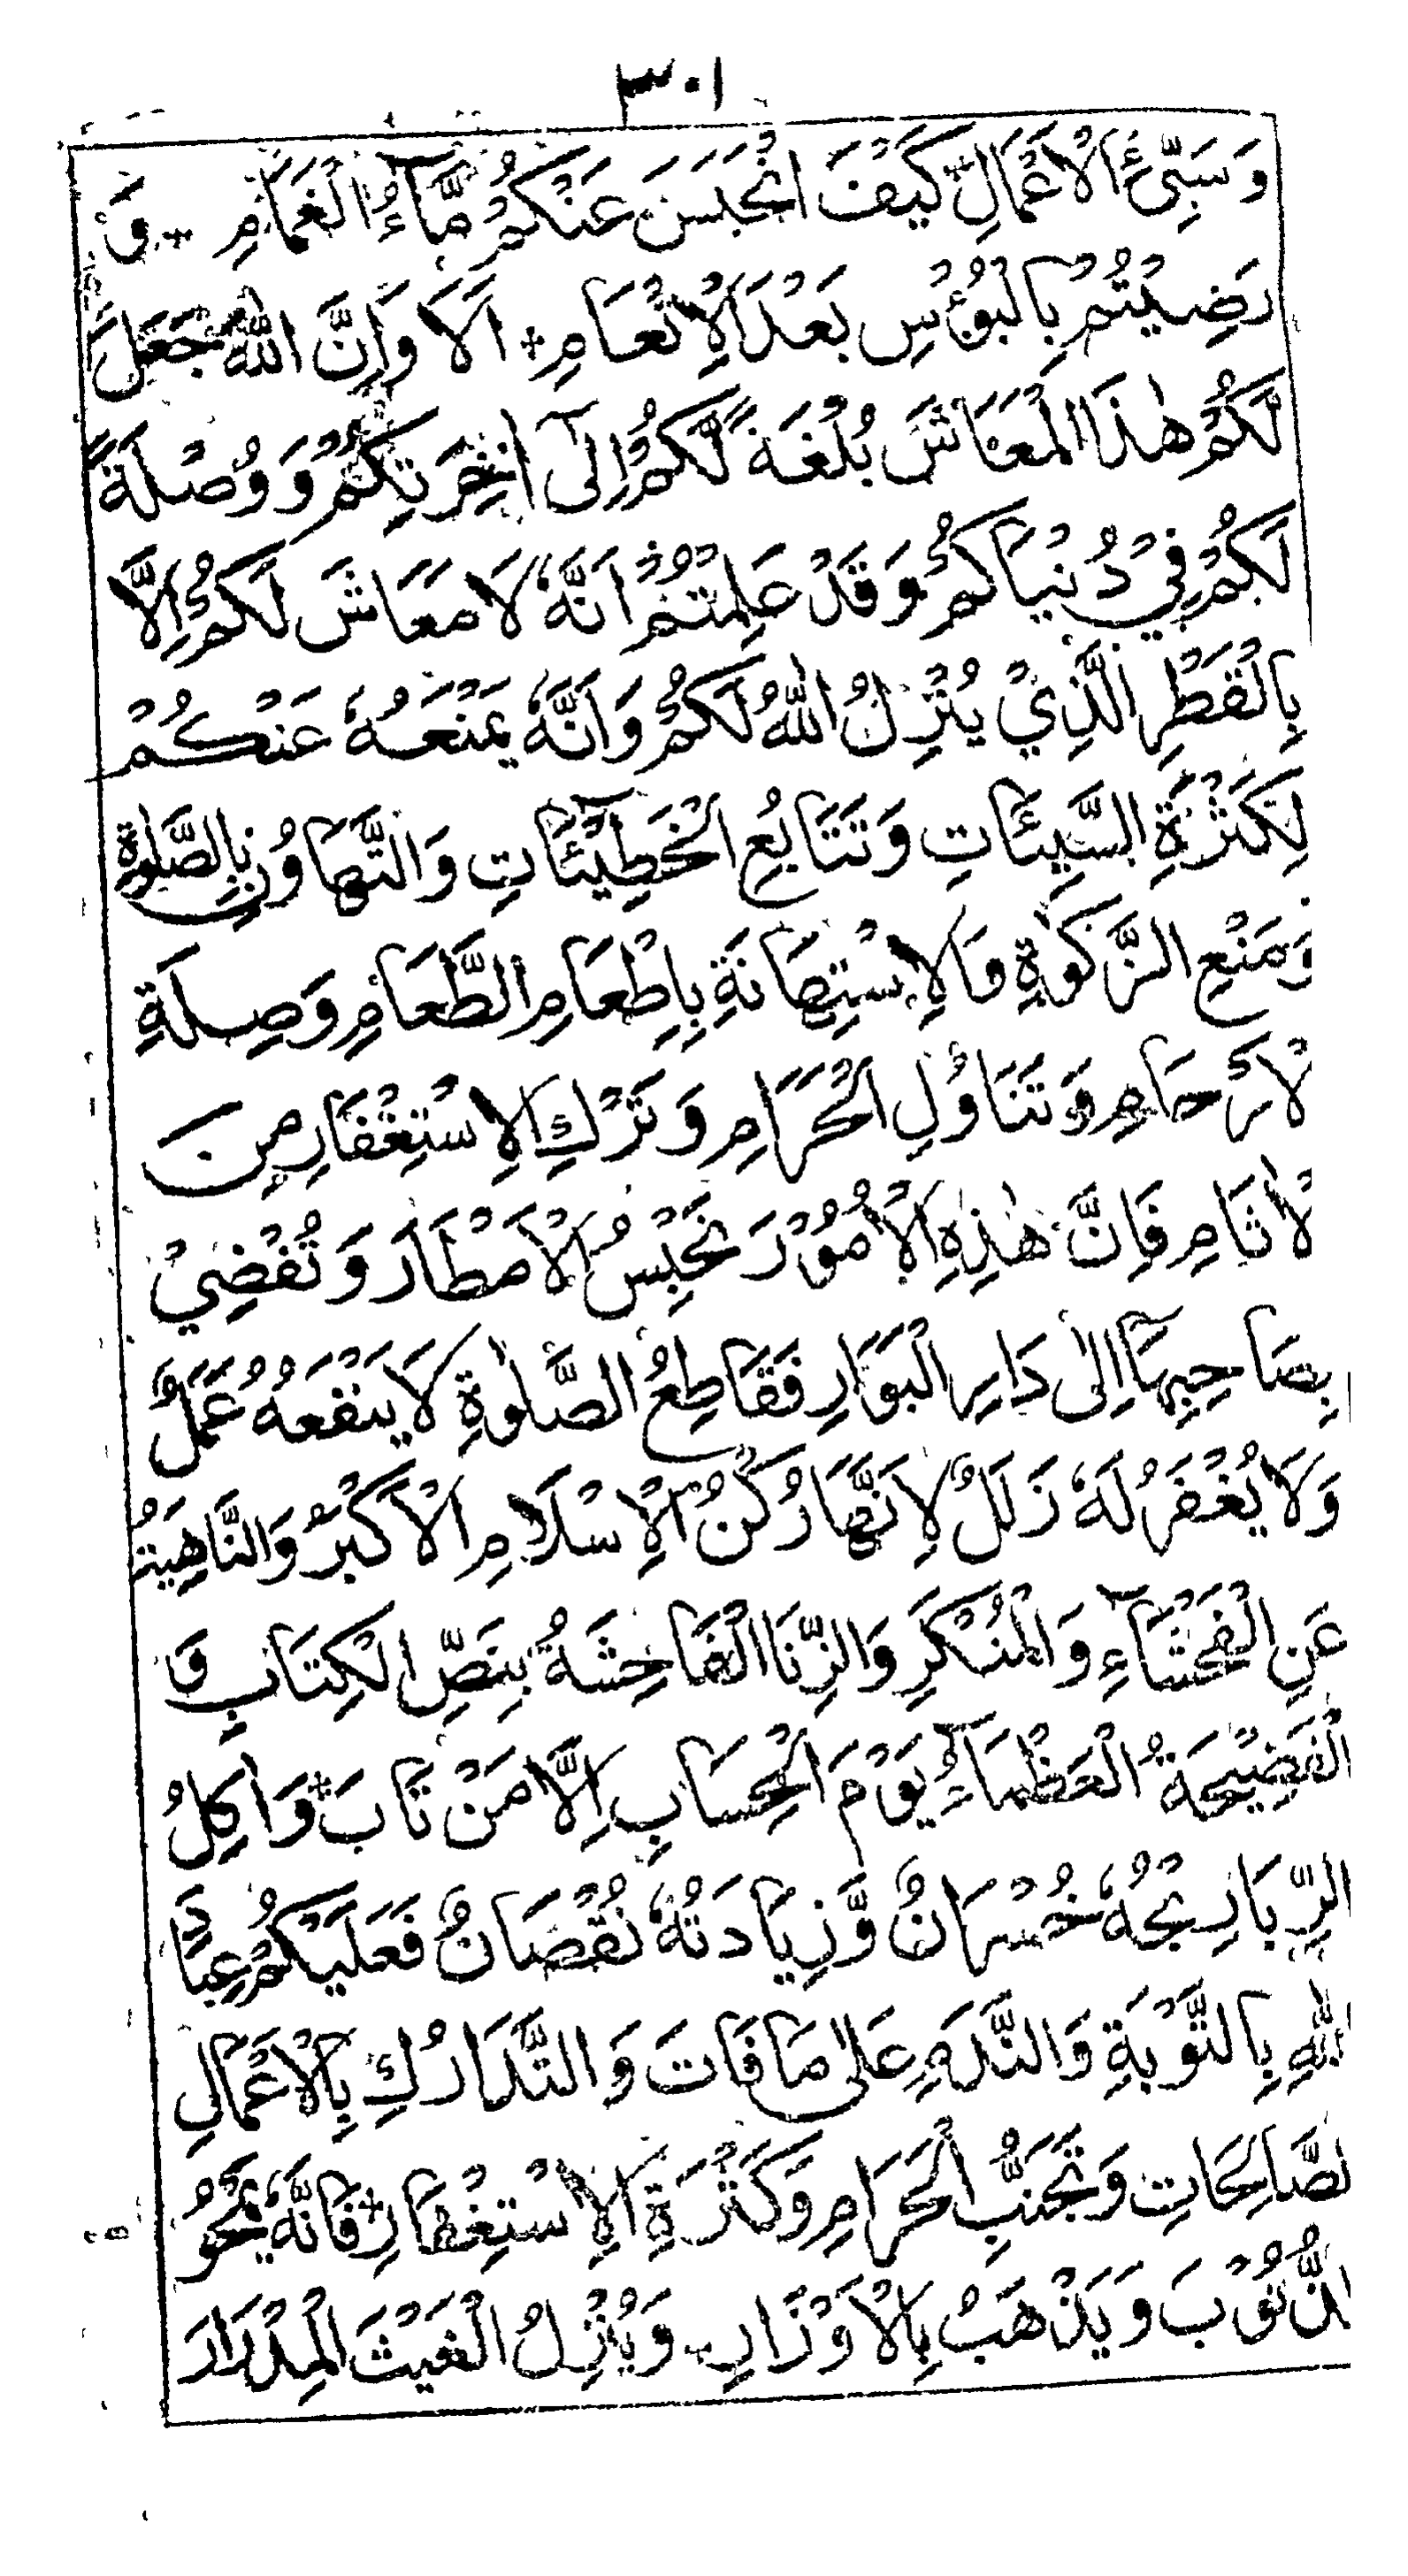 ٣٠١
وَسَيِّئِ الْاَعْمَالِ كَيْفَ انْحَبَسَ عَنْكُمْ مَّآءُ الْغَمَامِ + وَ
رَضِيْتُمْ بِالْبُؤْسِ بَعْدَ الْاِنْعَامِ + اَلَا وَاِنَّ اللّٰهَ جَعَلَ
لَكُمْ هٰذَا الْمَعَاشَ بُلْغَةً لَّكُمْ اِلٰٓى اٰخِرَتِكُمْ وَوُصْلَةً
لَكُمْ فِيْ دُنْيَاكُمْ وَقَدْ عَلِمْتُمْ اَنَّهٗ لَا مَعَاشَ لَكُمْ اِلَّا
بِالْقَطْرِ الَّذِيْ يُنْزِلُ اللّٰهُ لَكُمْ وَاَنَّهٗ يَمْنَعُهٗ عَنْكُمْ
لِكَثْرَةِ السَّيِّئَاتِ وَتَتَابُعِ الْخَطِيْٓئَاتِ وَالتَّهَاوُنِ بِالصَّلٰوةِ
وَمَنْعِ الزَّكٰوةِ وَالِاسْتِهَانَةِ بِاِطْعَامِ الطَّعَامِ وَصِلَةِ
لْاَرْحَامِ وَتَنَاوُلِ الْحَرَامِ وَتَرْكِ الْاِسْتِغْفَارِ مِنَ
لْاٰثَامِ فَاِنَّ هٰذِهِ الْاُمُوْرَ تَحْبِسُ الْاَمْطَارَ وَتُفْضِيْ
بِصَاحِبِهَآ اِلٰى دَارِ الْبَوَارِ فَقَاطِعُ الصَّلٰوةِ لَا يَنْفَعُهٗ عَمَلٌ
وَلَا يُغْفَرُ لَهٗ زَلَلٌ لِاَنَّهَا رُكْنُ الْاِسْلَامِ الْاَكْبَرُ وَالنَّاهِيَةُ
عَنِ الْفَحْشَآءِ وَالْمُنْكَرِ وَالزِّنَا الْفَاحِشَةُ بِنَصِّ الْكِتَابِ وَ
الْفَضِيْحَةُ الْعَظْمَآءُ يَوْمَ الْحِسَابِ اِلَّا مَنْ تَابَ + وَاٰكِلُ
الرِّبَا رِبْحُهٗ خُسْرَانٌ وَّزِيَادَتُهٗ نُقْصَانٌ فَعَلَيْكُمْ عِبَادَ
اللّٰهِ بِالتَّوْبَةِ وَالنَّدَمِ عَلٰى مَا فَاتَ وَالتَّدَارُكِ بِالْاَعْمَالِ
لصَّالِحَاتِ وَتَجَنُّبِ الْحَرَامِ وَكَثْرَةِ الْاِسْتِغْفَارِ + فَاِنَّهٗ يَمْحُو
الذُّنُوْبَ وَيَذْهَبُ بِالْاَوْزَارِ وَيُنْزِلُ الْغَيْثَ الْمِدْرَارَ